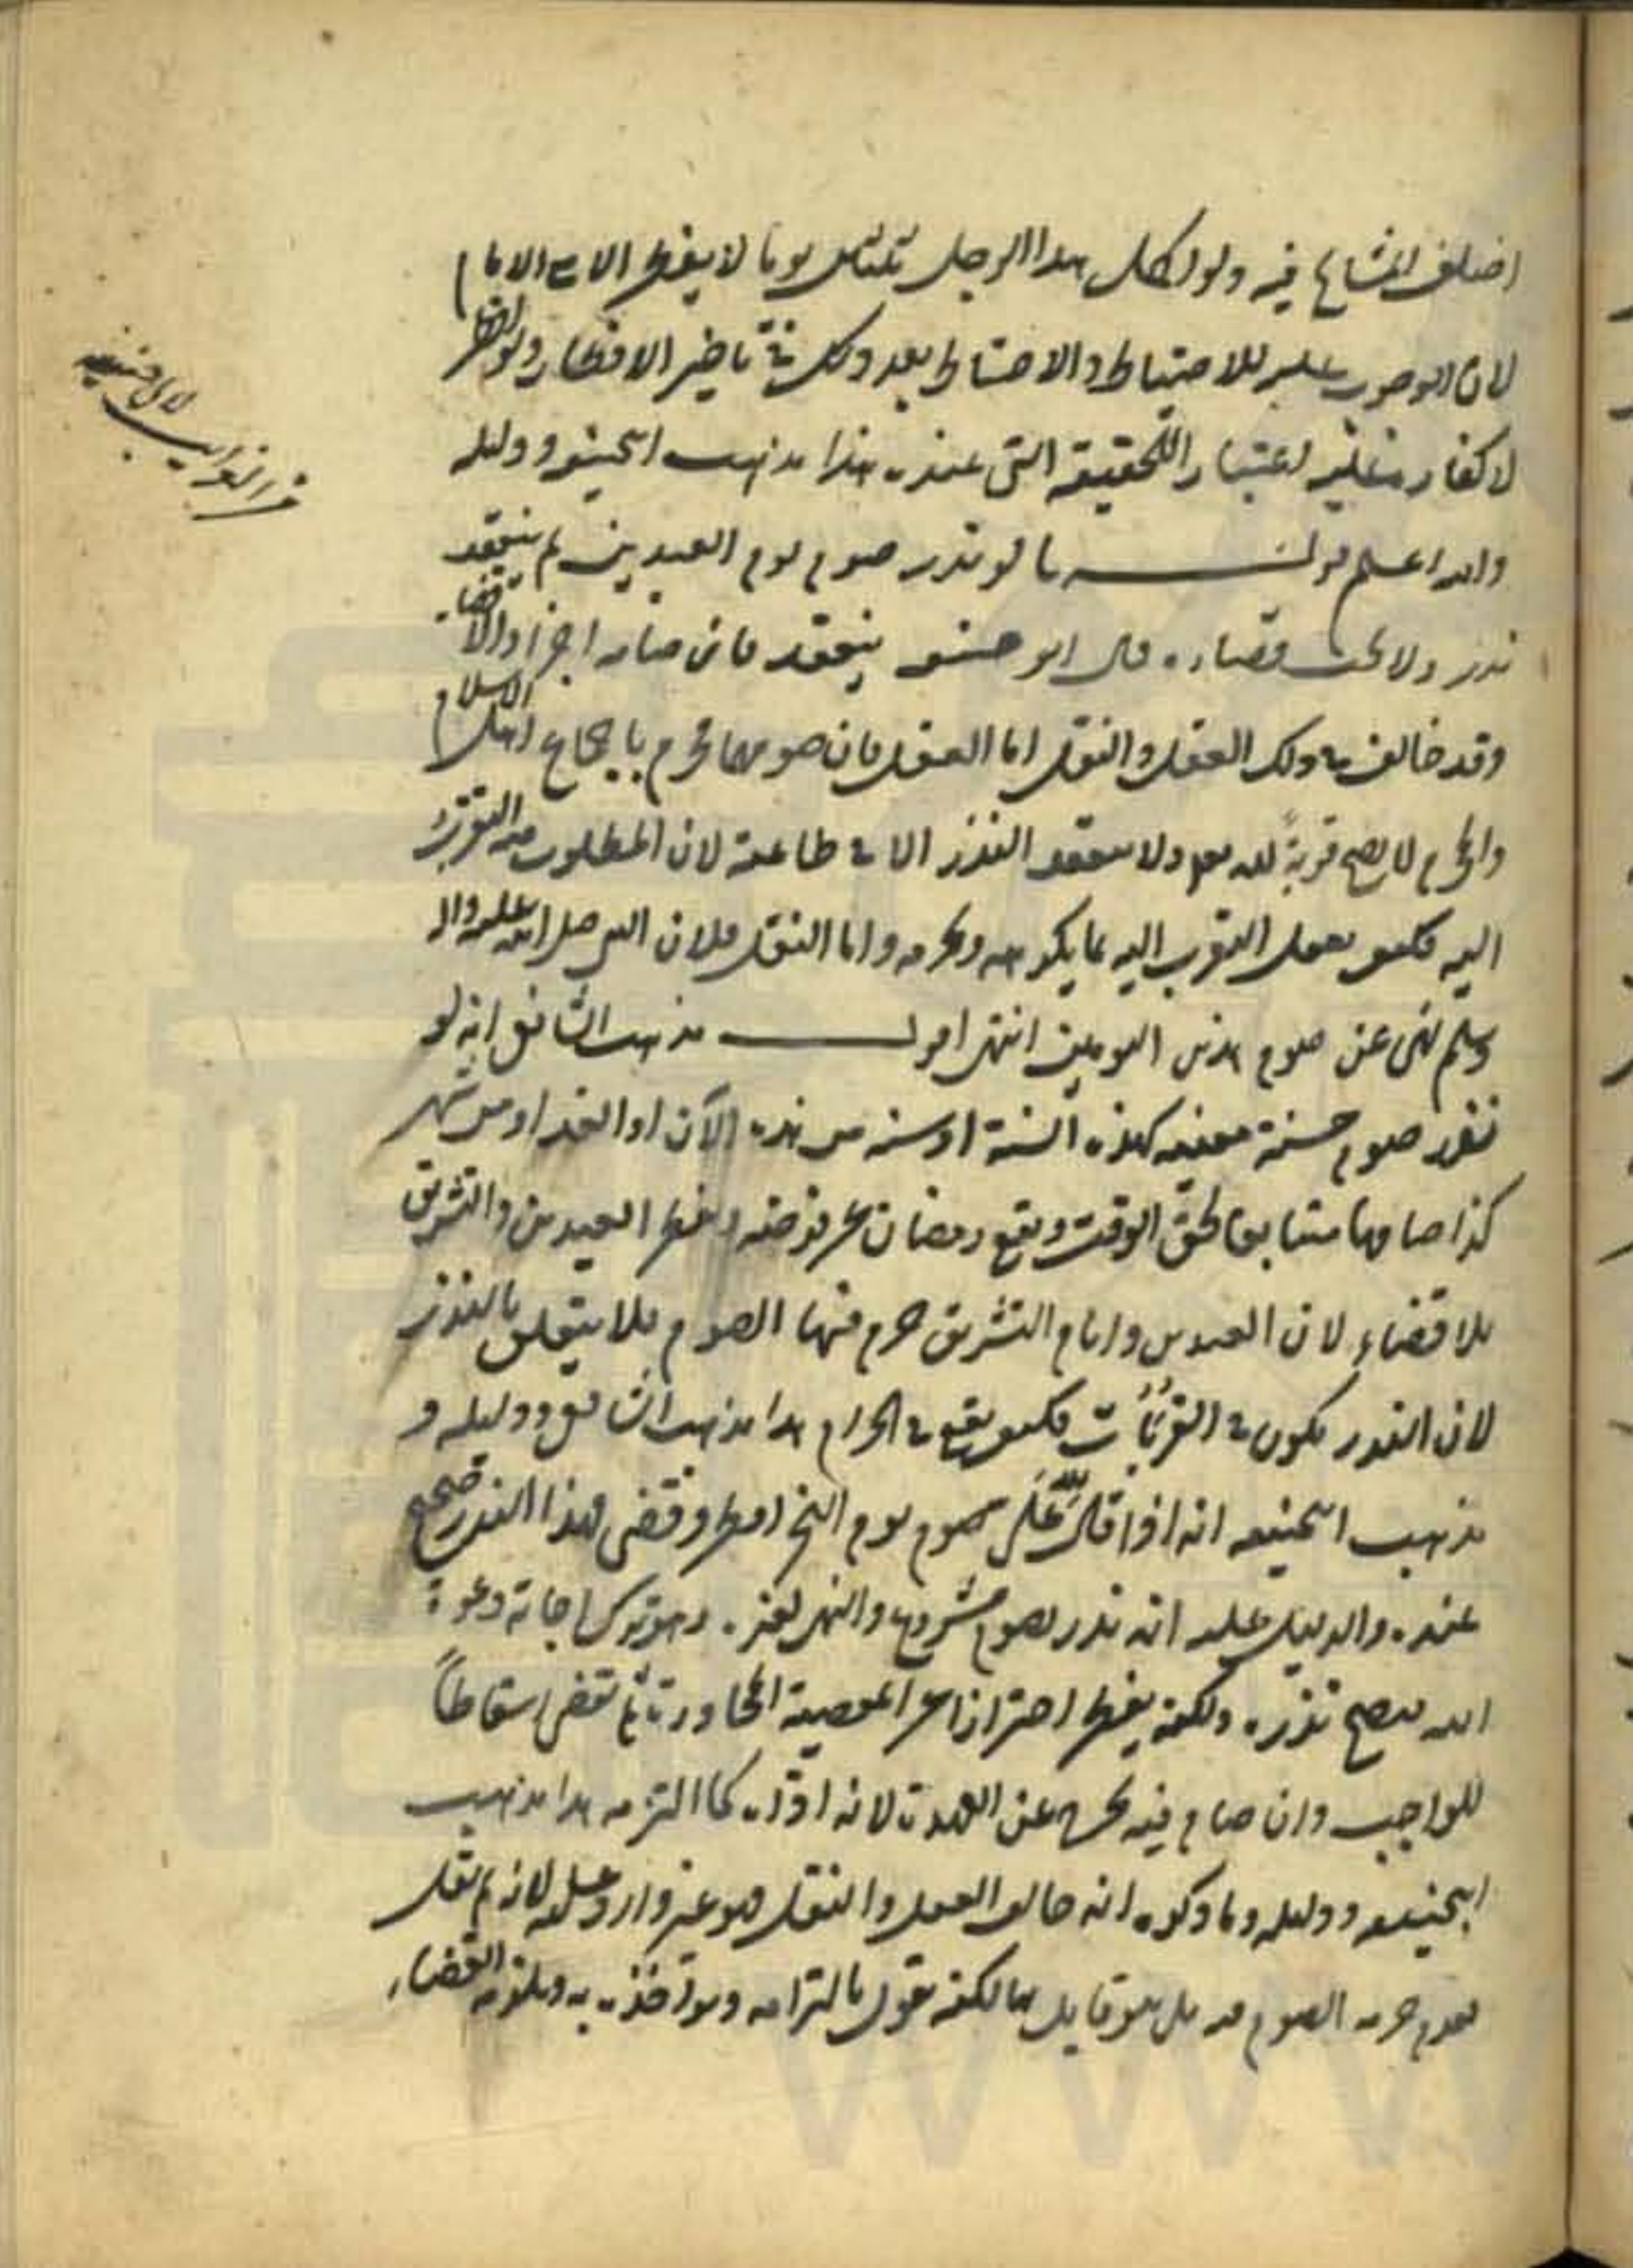 اختلف المشايخ فيه ولو اكمل هذا الرجل ثلثين يوما لا يفطر الا مع الامام
لان الوجوب عليه للاحتياط والاحتياط بعد ذلك في تاخير الافطار ولو افطر
لا كفارة عليه اعتبارا للحقيقة التي عنده هذا مذهب ابيحنيفه ودليله
والله اعلم قولـــه ما لو نذر صوم يوم العيدين لم ينعقد
نذره ولا يجب قضاءه قال ابو حنيفه ينعقد فان صامه اجزاه والا قضاء
وقد خالف في ذلك العقل والنقل اما العقل فان صومهما محرم باجماع اهل الاسلام
والمحرم لا يصح قربةً لله تعالى ولا ينعقد النذر الا في طاعة لان المطلوب منه التقرب
اليه فكيف يعقل التقرب اليه بما يكرهه ويحرمه واما النقل فلان النبي صلى الله عليه واله
وسلم نهى عن صوم هذين اليومين انتهى اقولـــ مذهب الشافعي انه لو
نذر صوم سنة معينه كهذه السنة او سنه من هذه الآن او الغد او من شهر
كذا صامها متتابعا لحق الوقت ويقع رمضان عن فرضه ويفطر العيدين والتشريق
بلا قضاء لان العيدين وايام التشريق حرم فيها الصوم فلا يتعلق بالنذر
لان النذر يكون في القربات فكيف يقع في الحرام هذا مذهب الشافعي ودليله و
مذهب ابيحنيفه انه اذا قال لله عَلَى صوم يوم النحر افطر وقضى فهذا النذر صحيح
عنده والدليل عليه انه نذر بصوم مشروع والنهي لغيره وهو ترك اجابة دعوة
الله فيصح نذره ولكنه يفطر احترازا عن المعصية المجاورة ثم يقضى اسقاطاً
للواجب وان صام فيه يخرج عن العهدة لانه اداه كما التزمه هذا مذهب
ابيحنيفه ودليله وما ذكره انه خالف العقل والنقل فهو غير وارد عليه لانه لم يقل
بعدم حرمه الصوم فيه بل هو قايل بها لكنه يقول بالتزامه ويؤاخذه به ويلزمه القضاء
من الغرايب
لابي حنيفه